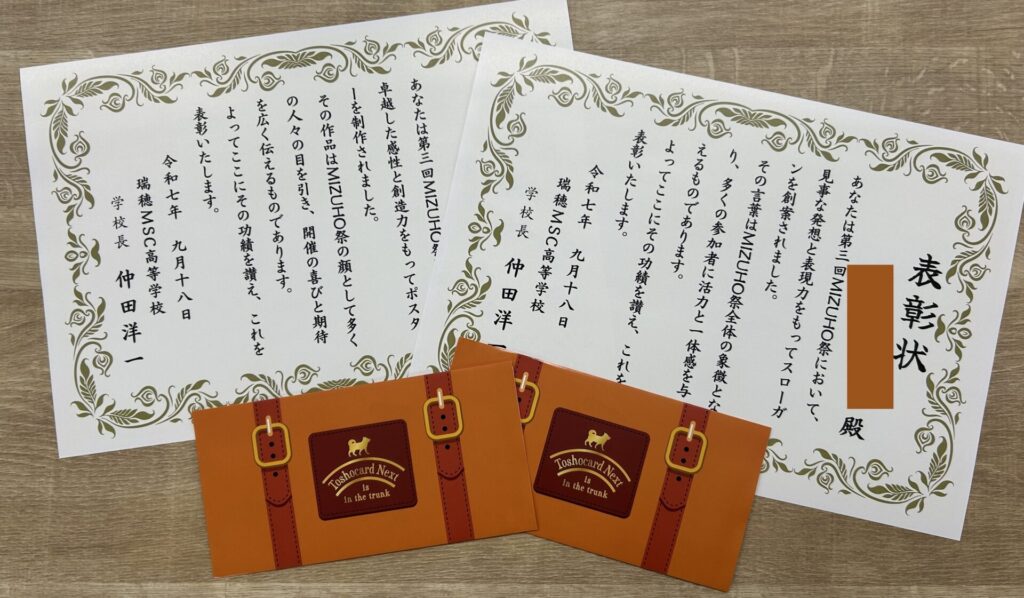 表彰状
殿
あなたは第三回MIZUHO祭において、
見事な発想と表現力をもってスローガ
ンを創案されました。
その言葉はMIZUHO祭全体の象徴とな
り、多くの参加者に活力と一体感を与
えるものであります。
よってここにその功績を讃え、これを
表彰いたします。
令和七年 九月十八日
瑞穂MSC高等学校
学校長 仲田洋一
あなたは第三回MIZUHO祭
卓越した感性と創造力をもってポスタ
ーを制作されました。
その作品はMIZUHO祭の顔として多く
の人々の目を引き、開催の喜びと期待
を広く伝えるものであります。
よってここにその功績を讃え、これを
表彰いたします。
令和七年 九月十八日
瑞穂MSC高等学校
学校長 仲田洋一
Toshocard Next
is
in the trunk
Toshocard Next
is
in the trunk